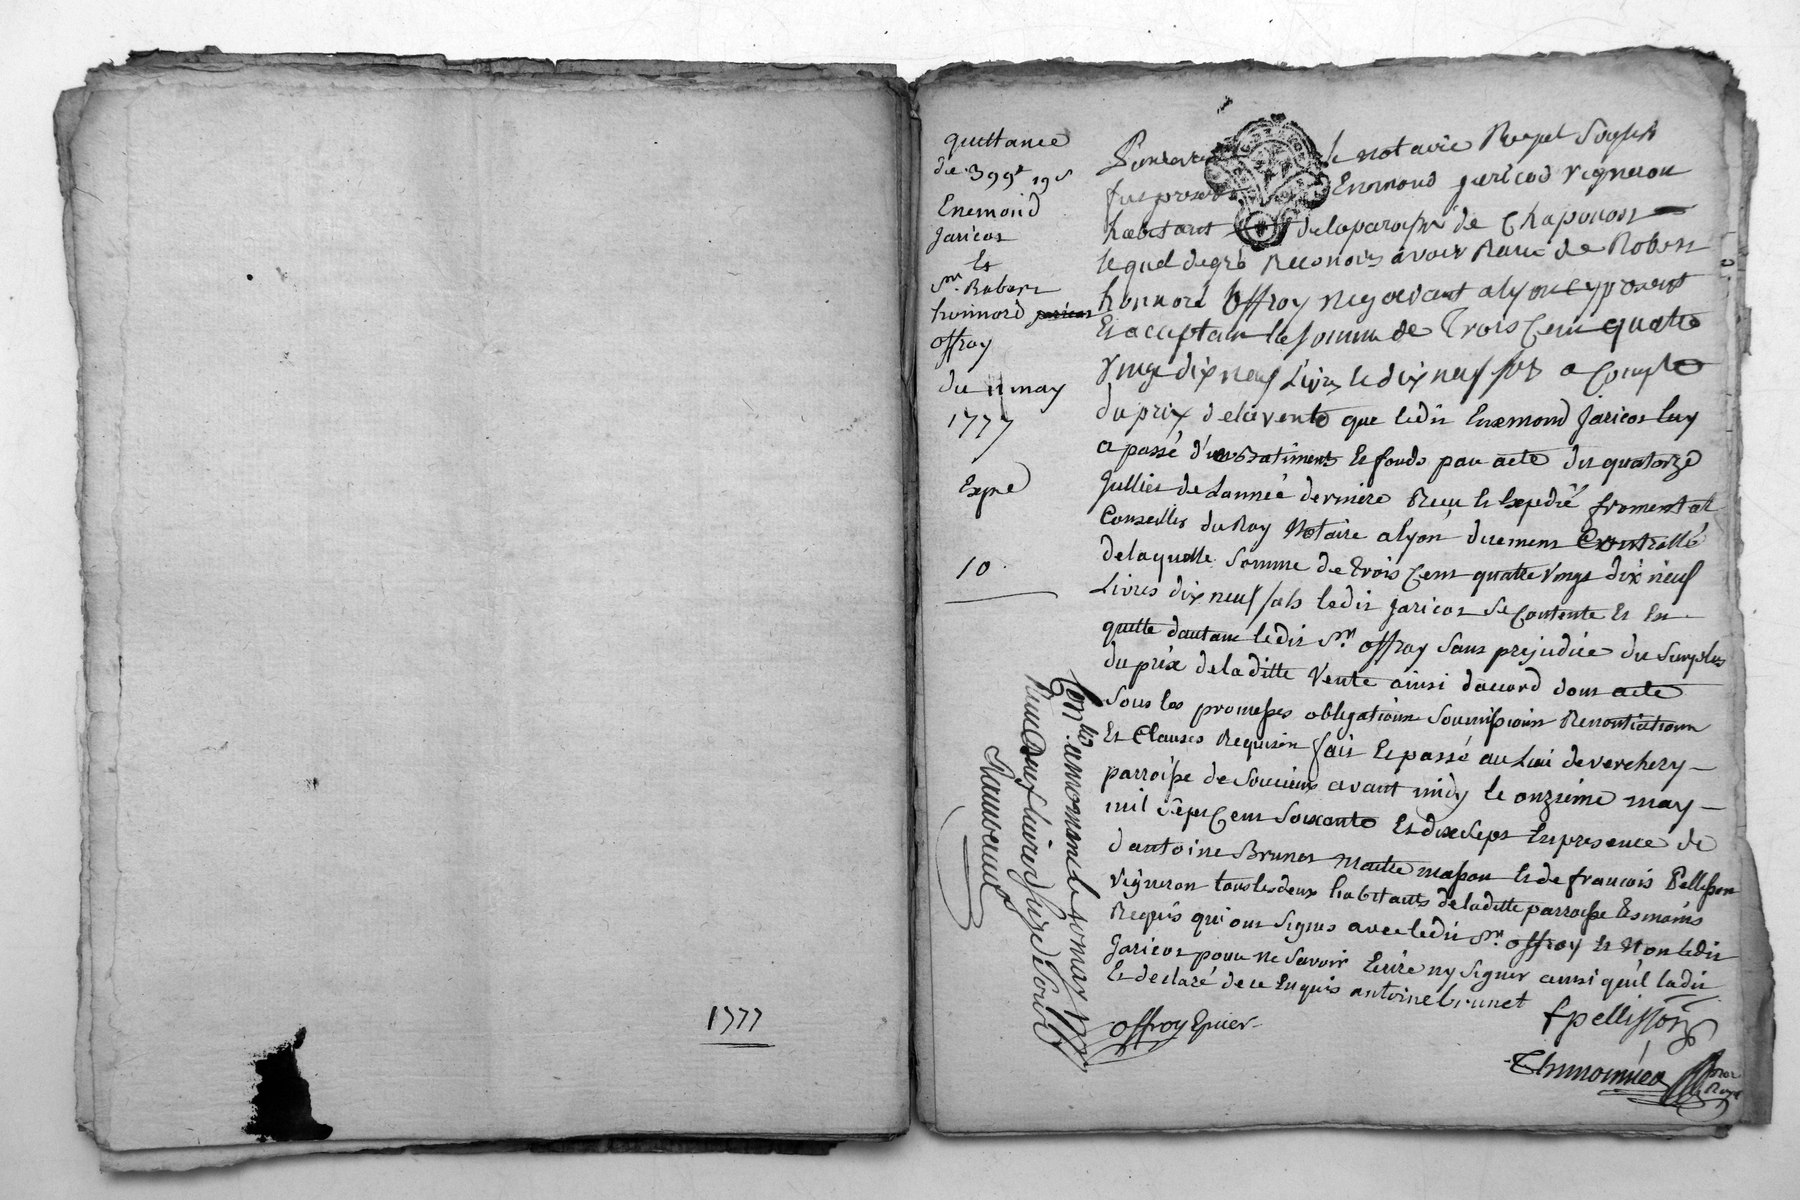 1777
quittance
de 399# 19s
Enemond
Jaricot
Et
Sr. Robert
honnoré
offray
du 11 may
1777
Expé
10
Pardevant le notaire Royal Soussé
fut présent Ennemond Jaricod vigneron
habitant de la paroisse de Chaponost
lequel de gré Reconoit avoir Recu de Robert
honnoré offray negotiant a lyon cy present
Et acceptant la somme de Trois Cent quatre
vingt dix neuf Livres dix neuf sols a Compte
du prix de la vente que ledit Enemond Jaricot luy
a passé d'un batiments et fonds par acte du quatorze
Jullier de L'année derniere Recu et Expedié fromental
Conseiller du Roy Notaire a lyon duement Controllé
de laquelle Somme de trois Cent quatre vingt dix neuf
Livres dix neuf sols ledit Jaricot se Contente Et En
quitte d'autant ledit Sr. offray Sans prejudice du Surplus
du prix de la ditte Vente ainsi d'accord dont acte
Sous les promesses obligations Soumissions Renontiations
Et Clauses Requises fait Et passé au Lieu de verchery
parroisse de Soucieu avant midy le onzieme may
mil Sept Cent Soixante Et dix Sept En presence de
d'antoine Brunet Maitre masson Et de francois Pellisson
vigneron tous les deux habitants de la ditte parroisse temoins
Requis qui ont Signés avec ledit Sr. offray Et Non ledit
Jaricot pour ne Savoir Ecrire ny Signer ainsi qu'il la dit
Et declaré de ce Enquis antoine brunet
offray Epicier
f pellisson
Thimonnier
Not.
Royal
Conlé a mornant le 20 may 1777
Recu Deux livres Seize Sols